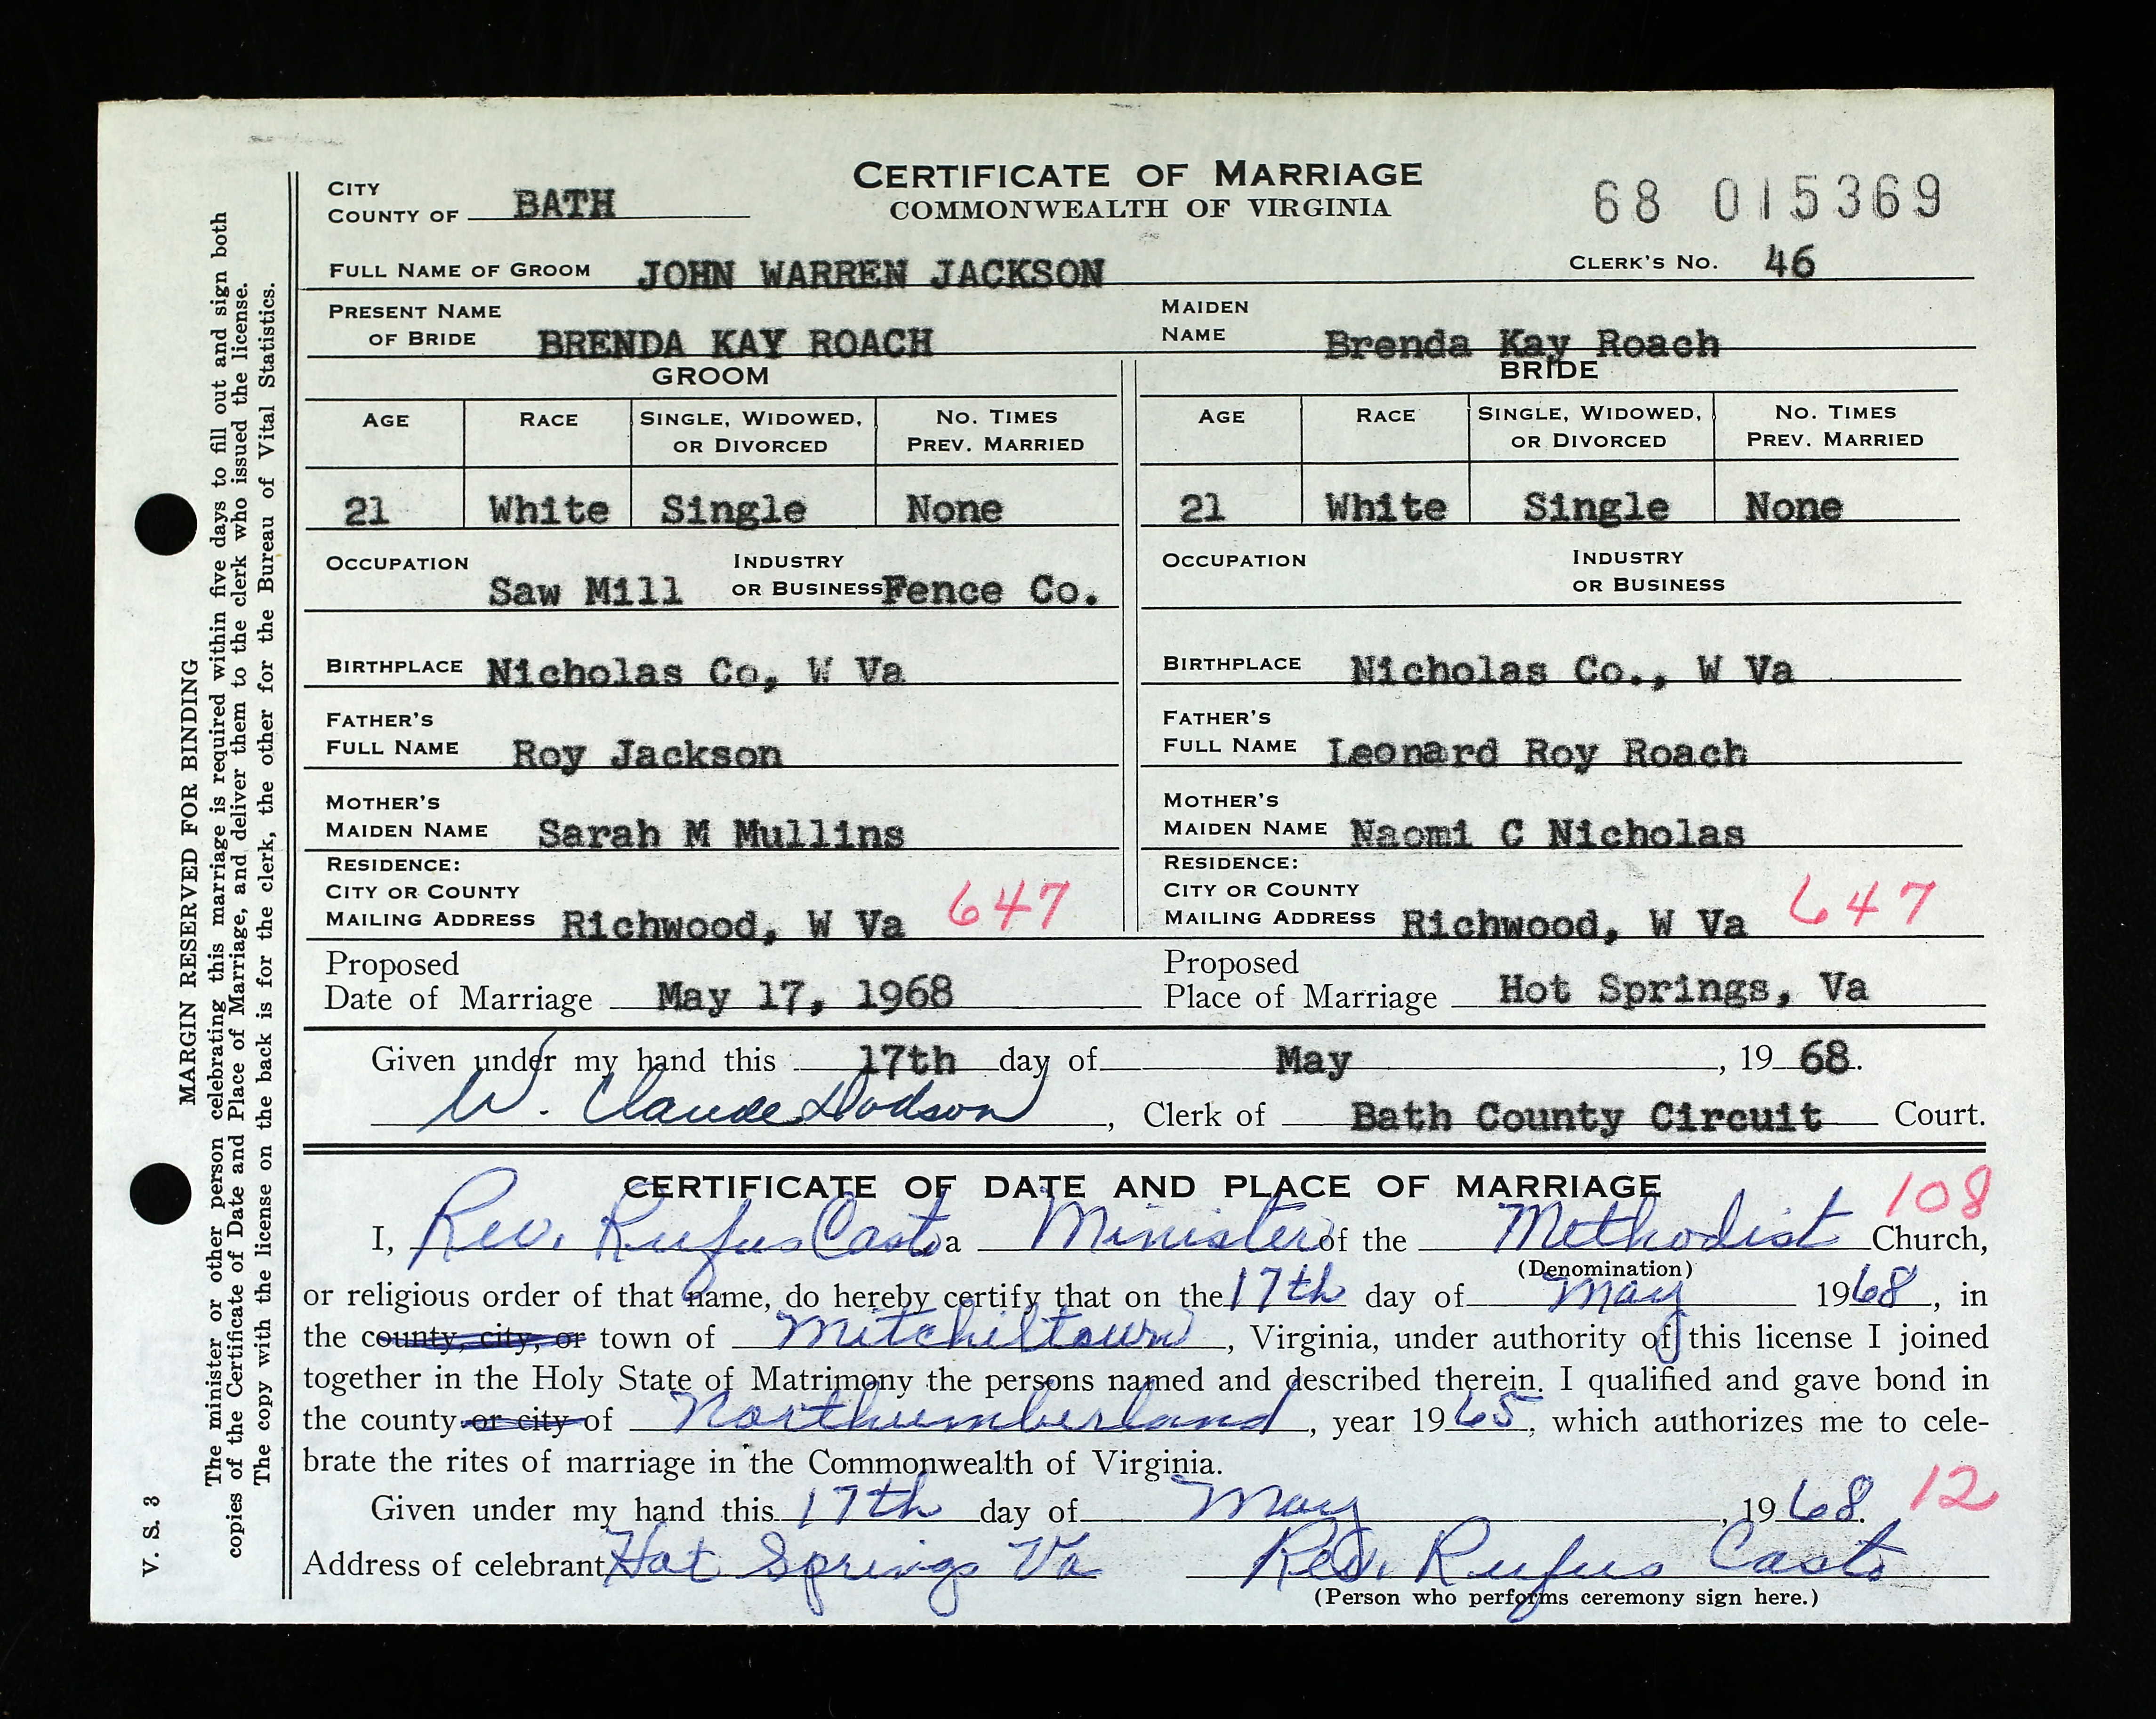 CERTIFICATE OF MARRIAGE
COMMONWEALTH OF VIRGINIA
CITY
COUNTY OF BATH
68 015369
CLERK'S NO. 46
FULL NAME OF GROOM JOHN WARREN JACKSON
PRESENT NAME OF BRIDE BRENDA KAY ROACH MAIDEN NAME Brenda Kay Roach
GROOM
AGE RACE SINGLE, WIDOWED, OR DIVORCED NO. TIMES PREV. MARRIED
21 White Single None
OCCUPATION Saw Mill INDUSTRY OR BUSINESS Fence Co.
BIRTHPLACE Nicholas Co, W Va
FATHER'S FULL NAME Roy Jackson
MOTHER'S MAIDEN NAME Sarah M Mullins
RESIDENCE:
CITY OR COUNTY
MAILING ADDRESS Richwood, W Va 647
BRIDE
AGE RACE SINGLE, WIDOWED, OR DIVORCED NO. TIMES PREV. MARRIED
21 White Single None
OCCUPATION INDUSTRY OR BUSINESS
BIRTHPLACE Nicholas Co., W Va
FATHER'S FULL NAME Leonard Roy Roach
MOTHER'S MAIDEN NAME Naomi C Nicholas
RESIDENCE:
CITY OR COUNTY
MAILING ADDRESS Richwood, W Va 647
Proposed Date of Marriage May 17, 1968 Proposed Place of Marriage Hot Springs, Va
Given under my hand this 17th day of May, 19 68.
W. Claude Dodson, Clerk of Bath County Circuit Court.
CERTIFICATE OF DATE AND PLACE OF MARRIAGE 108
I, Rev. Rufus Casto a Minister of the Methodist Church,
(Denomination)
or religious order of that name, do hereby certify that on the 17th day of May 1968, in
the county, city, or town of Mitcheltown, Virginia, under authority of this license I joined
together in the Holy State of Matrimony the persons named and described therein. I qualified and gave bond in
the county or city of Northumberland, year 1965, which authorizes me to cele-
brate the rites of marriage in the Commonwealth of Virginia.
Given under my hand this 17th day of May, 1968. 12
Address of celebrant Hot Springs Va Rev. Rufus Casto
(Person who performs ceremony sign here.)
MARGIN RESERVED FOR BINDING
The minister or other person celebrating this marriage is required within five days to fill out and sign both
copies of the Certificate of Date and Place of Marriage, and deliver them to the clerk who issued the license.
The copy with the license on the back is for the clerk, the other for the Bureau of Vital Statistics.
V. S. 3